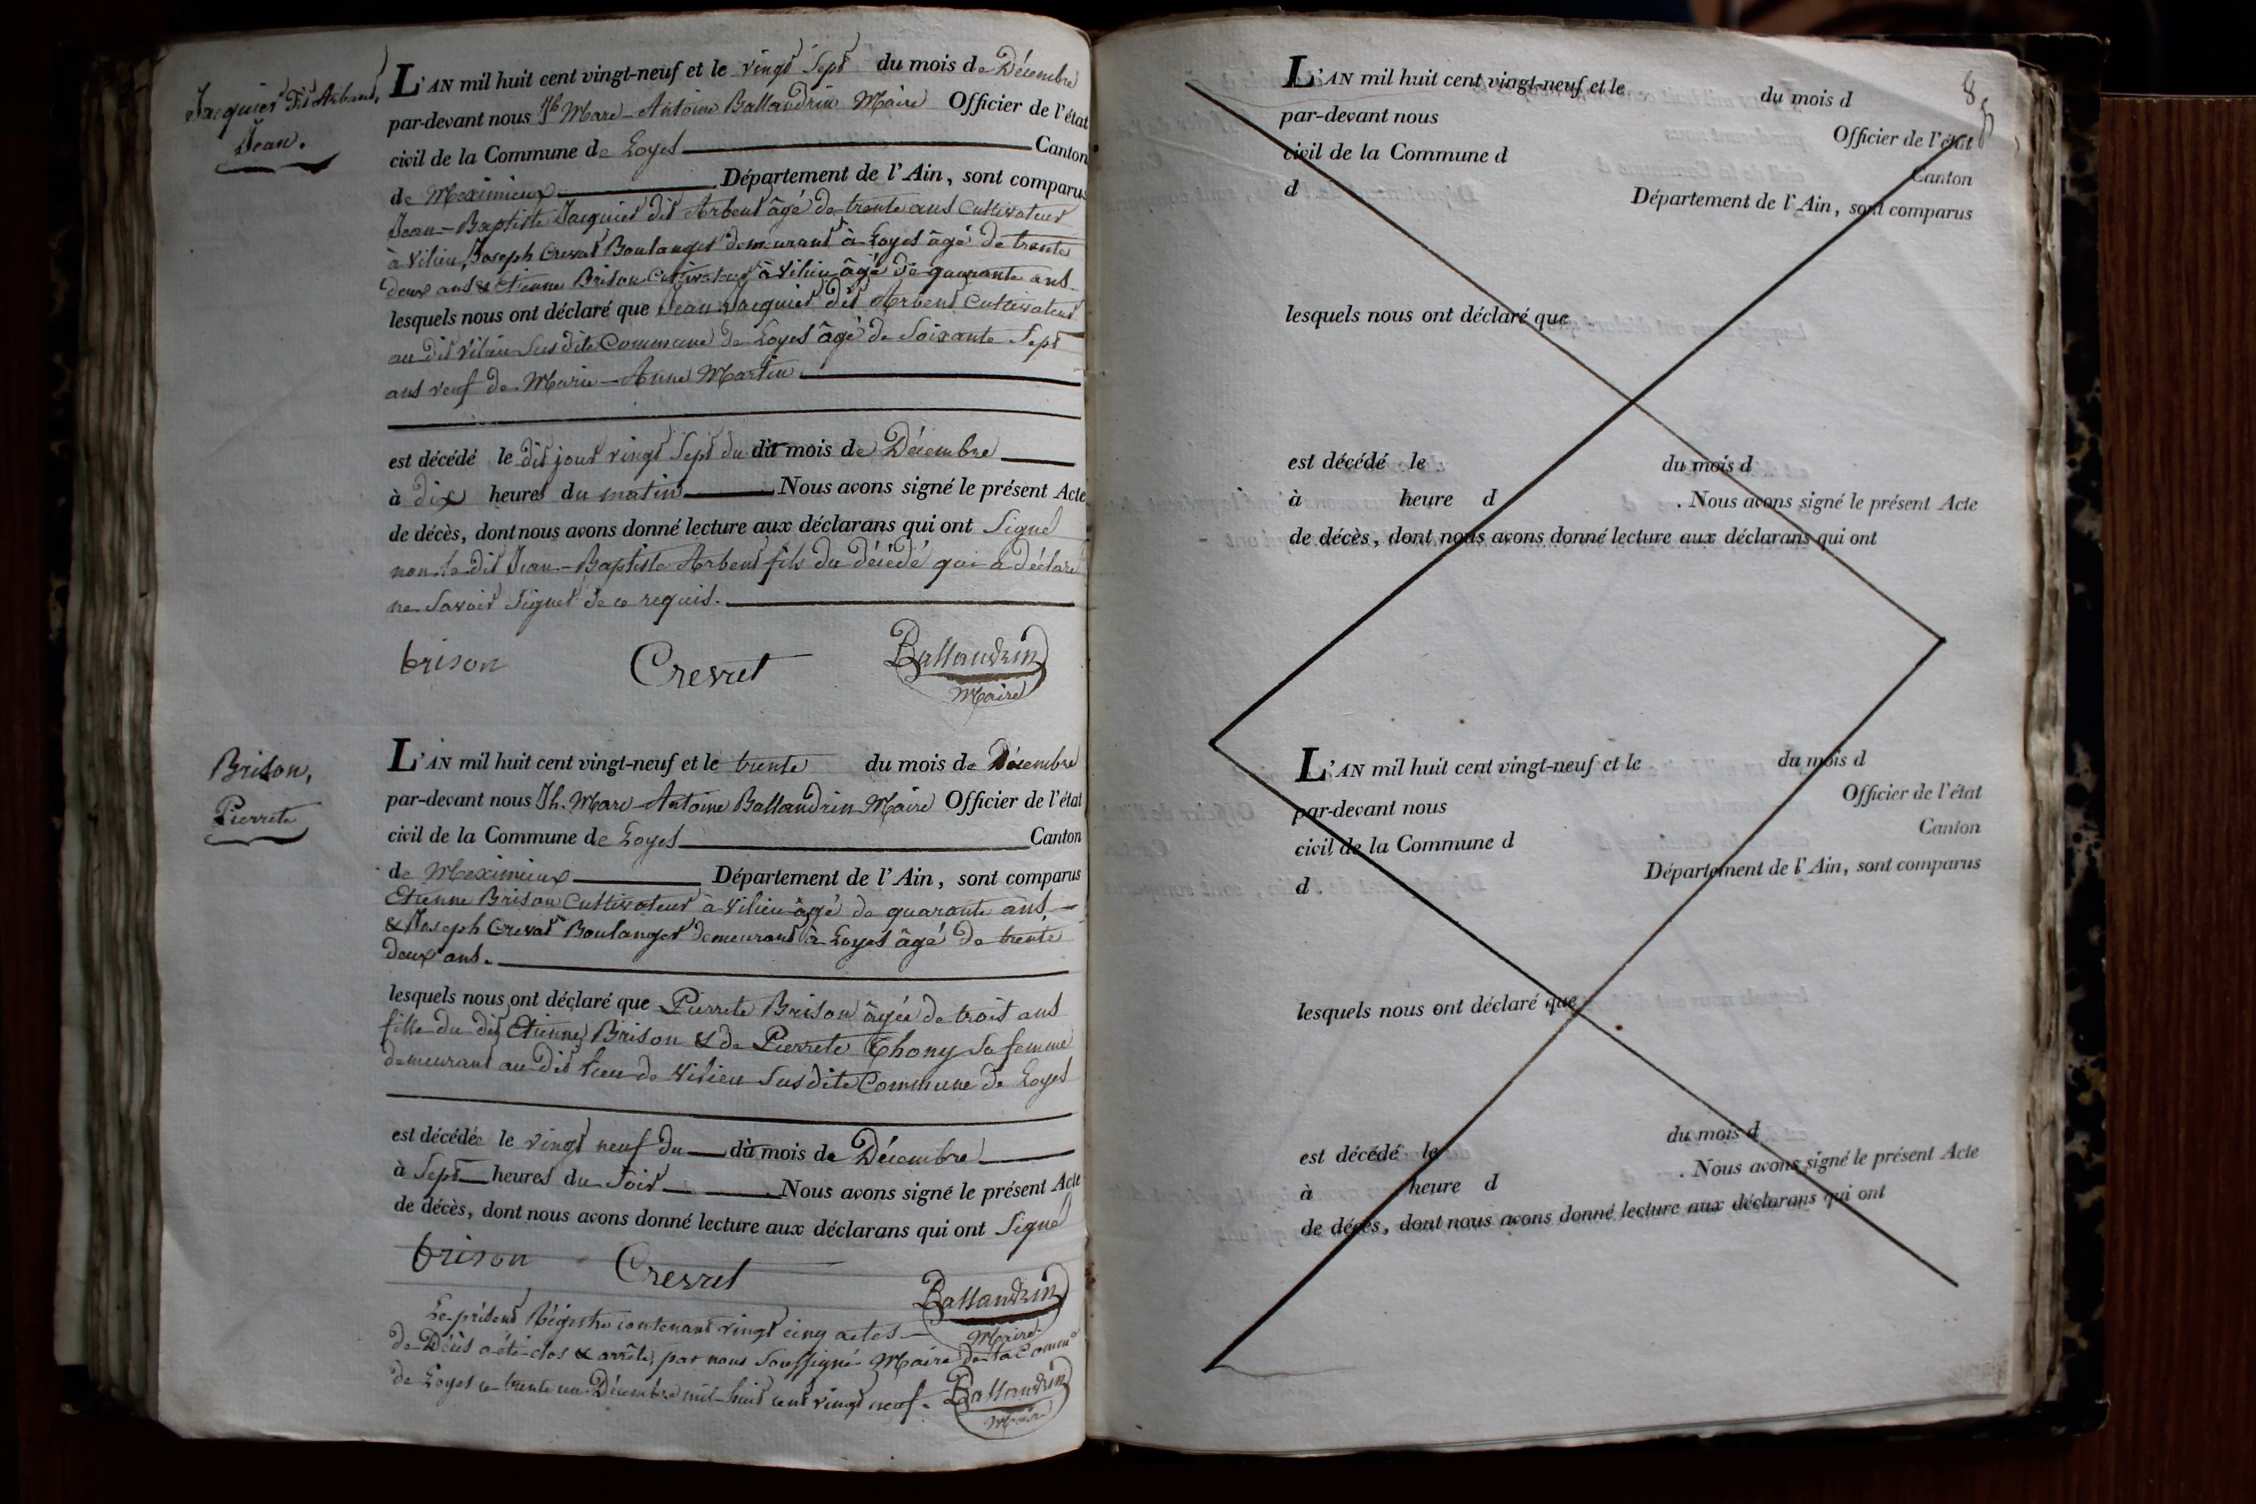 Jacquier dit Arbent,
Jean.
L'AN mil huit cent vingt-neuf et le vingt Sept du mois de Décembre
par-devant nous Jh Marc-Antoine Ballandrin Maire Officier de l'état
civil de la Commune de Loyes Canton
de Meximieux Département de l'Ain, sont comparus
Jean-Baptiste Jacquier dit Arbent âgé de trente ans Cultivateur
à Vilieu, Joseph Crevat Boulanger demeurant à Loyes âgé de trente
deux ans & Etienne Brison Cultivateur à Vilieu âgé de quarante ans
lesquels nous ont déclaré que Jean Jacquier dit Arbent Cultivateur
au dit Vilieu susdite Commune de Loyes âgé de Soixante Sept
ans veuf de Marie-Anne Martin.
est décédé le dit jour vingt Sept du dit mois de Décembre
à dix heures du matin Nous avons signé le présent Acte
de décès, dont nous avons donné lecture aux déclarans qui ont Signé
non le dit Jean-Baptiste Arbent fils du décédé qui a déclaré
ne Savoir Signer de ce requis.
brison Crevat Ballandrin
Maire
Brison,
Pierrete
L'AN mil huit cent vingt-neuf et le trente du mois de Décembre
par-devant nous Jh. Marc-Antoine Ballandrin Maire Officier de l'état
civil de la Commune de Loyes Canton
de Meximieux Département de l'Ain, sont comparus
Etienne Brison Cultivateur à Vilieu âgé de quarante ans
& Joseph Crevat Boulanger demeurant à Loyes âgé de trente
deux ans.
lesquels nous ont déclaré que Pierrete Brison âgée de trois ans
fille du dit Etienne Brison & de Pierrete Thony sa femme
demeurant au dit lieu de Vilieu Susdite Commune de Loyes
est décédée le vingt neuf du dit mois de Décembre
à Sept heures du Soir Nous avons signé le présent Acte
de décès, dont nous avons donné lecture aux déclarans qui ont Signé
brison Crevat Ballandrin
Maire.
Le présent Régistre contenant vingt cinq actes
de Décès a été clos & arrêté, par nous Soussigné Maire de la Comme
de Loyes ce trente un Décembre mil huit cent vingt neuf. Ballandrin
Maire
8
L'AN mil huit cent vingt-neuf et le du mois d
par-devant nous Officier de l'état
civil de la Commune d Canton
d Département de l'Ain, sont comparus
lesquels nous ont déclaré que
est décédé le du mois d
à heure d . Nous avons signé le présent Acte
de décès, dont nous avons donné lecture aux déclarans qui ont
L'AN mil huit cent vingt-neuf et le du mois d
par-devant nous Officier de l'état
civil de la Commune d Canton
d Département de l'Ain, sont comparus
lesquels nous ont déclaré que
est décédé le du mois d
à heure d . Nous avons signé le présent Acte
de décès, dont nous avons donné lecture aux déclarans qui ont